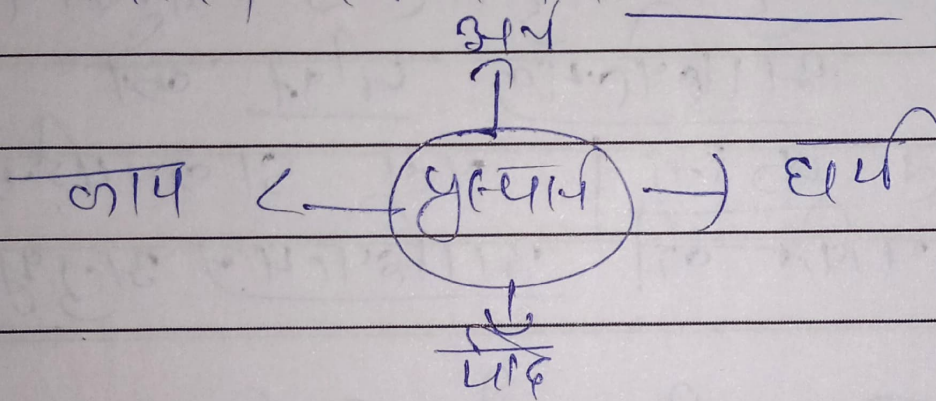 अर्थ
काम पुरुषार्थ धर्म
मोक्ष